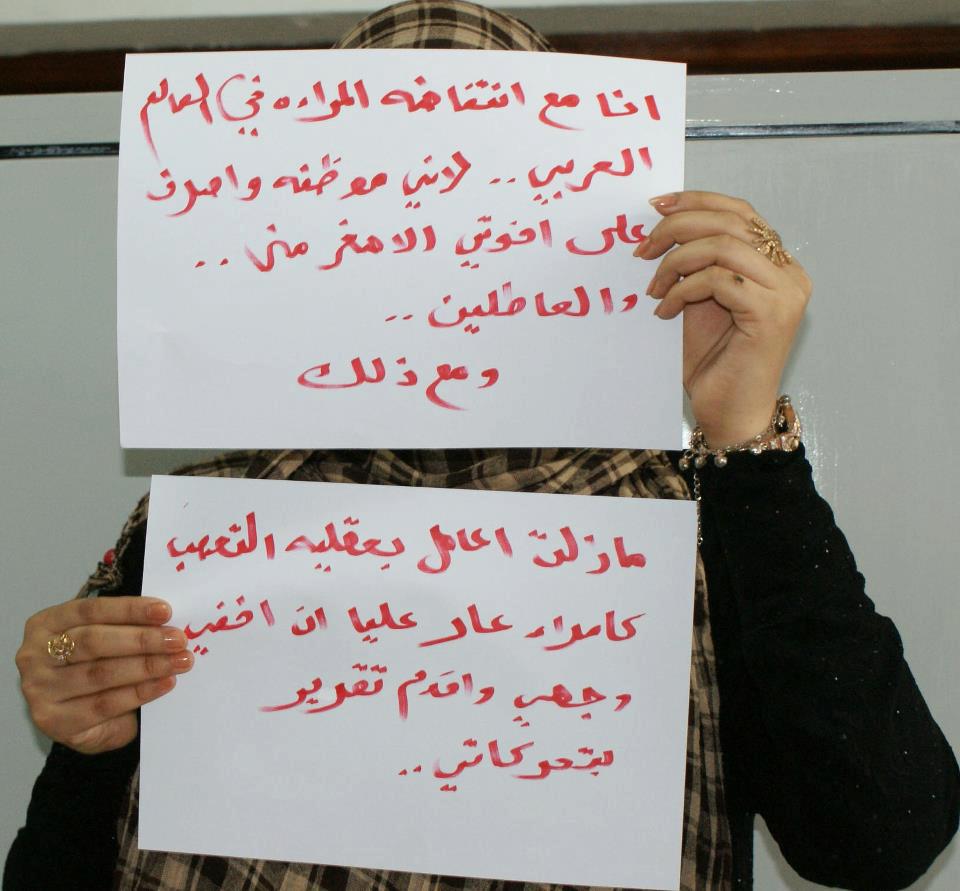 انا مع انتفاضه المراءه في العالم
العربي .. لانني موظفه واصرف
على اخوتي الاصغر مني ..
والعاطلين ..
ومع ذلك
مازلت اعامل بعقليه التعصب
كامراء عار عليا ان اخفي
وجهي واقدم تقرير
بتحركاتي ..